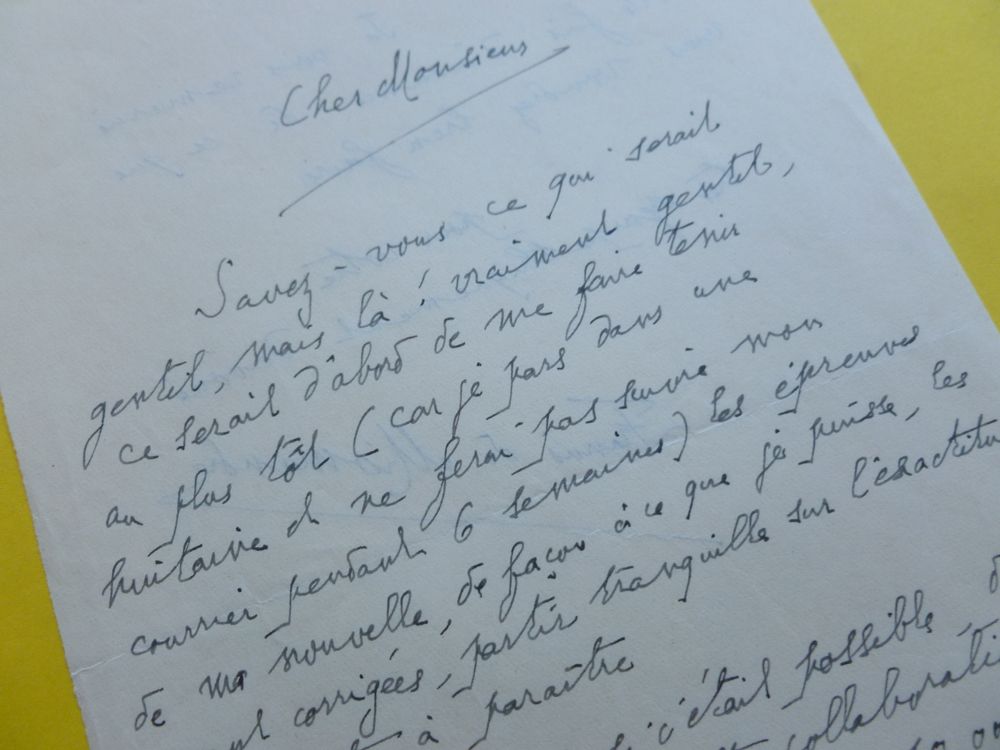 Cher Monsieur
Savez-vous ce qui serait
gentil, mais là ! vraiment gentil,
ce serait d'abord de me faire tenir
au plus tôt (car je pars dans une
huitaine et ne ferai pas suivre mon
courrier pendant 6 semaines) les épreuves
de ma nouvelle, de façon à ce que je puisse, les
corrigées, partir tranquille sur l'exactitu
à paraître
c'était possible,
collaborati